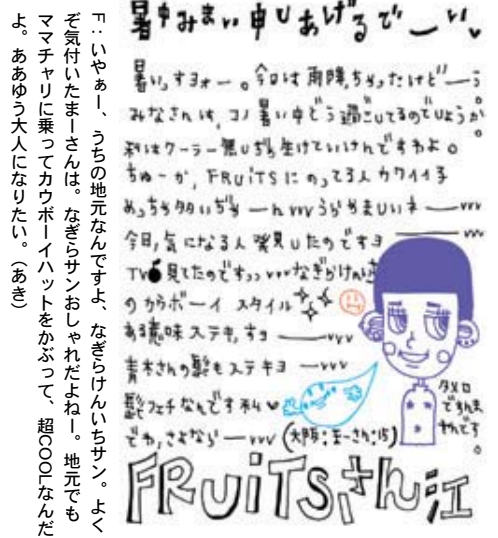 暑中みまい申しあげるでーい
暑いっすョォー。今日は雨降っちゃったけどーう
みなさんは、コノ暑い中どう過ごしてるのでしょうか。
私はクーラー無しぢゃ生けていけんですわよ。
ちゅーか、FRUiTSにのってる人カワイイ子
めっちゃ多いぢゃーんvvvうらやましいネーvvv
今日、気になる人発見したのですョ
TV見てたのですョvvvなぎらけんいち
のカウボーイスタイル
ある意味ステキ。すョーvvv
青木さんの髪もステキョーvvv
髪フェチなんです私
でわ、さよならーvvv(大阪:まーさん:15)
タメロ
ですんま
せんです。
FRUiTSさん江
F:いやぁー、うちの地元なんですよ、なぎらけんいちサン。よく
ぞ気付いたまーさんは。なぎらサンおしゃれだよねー。地元でも
ママチャリに乗ってカウボーイハットをかぶって、超COOLなんだ
よ。ああゆう大人になりたい。(あき)